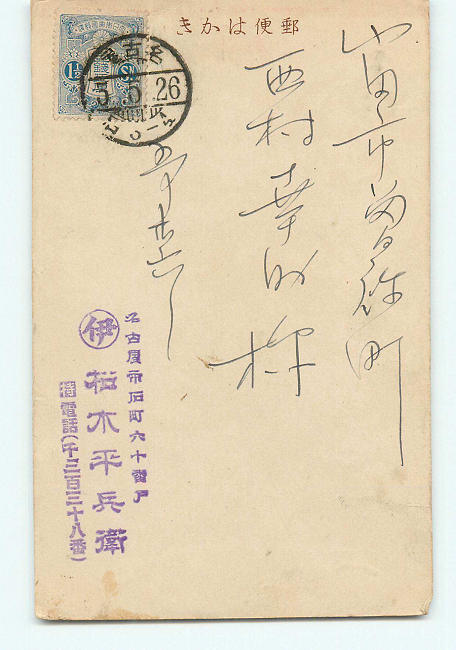 郵便はかき
山田市曽祢町
西村幸助様
名古屋
5.5.26
名古屋市石町六十番戸
伊
柏木平兵衛
電話(千三百三十八番)